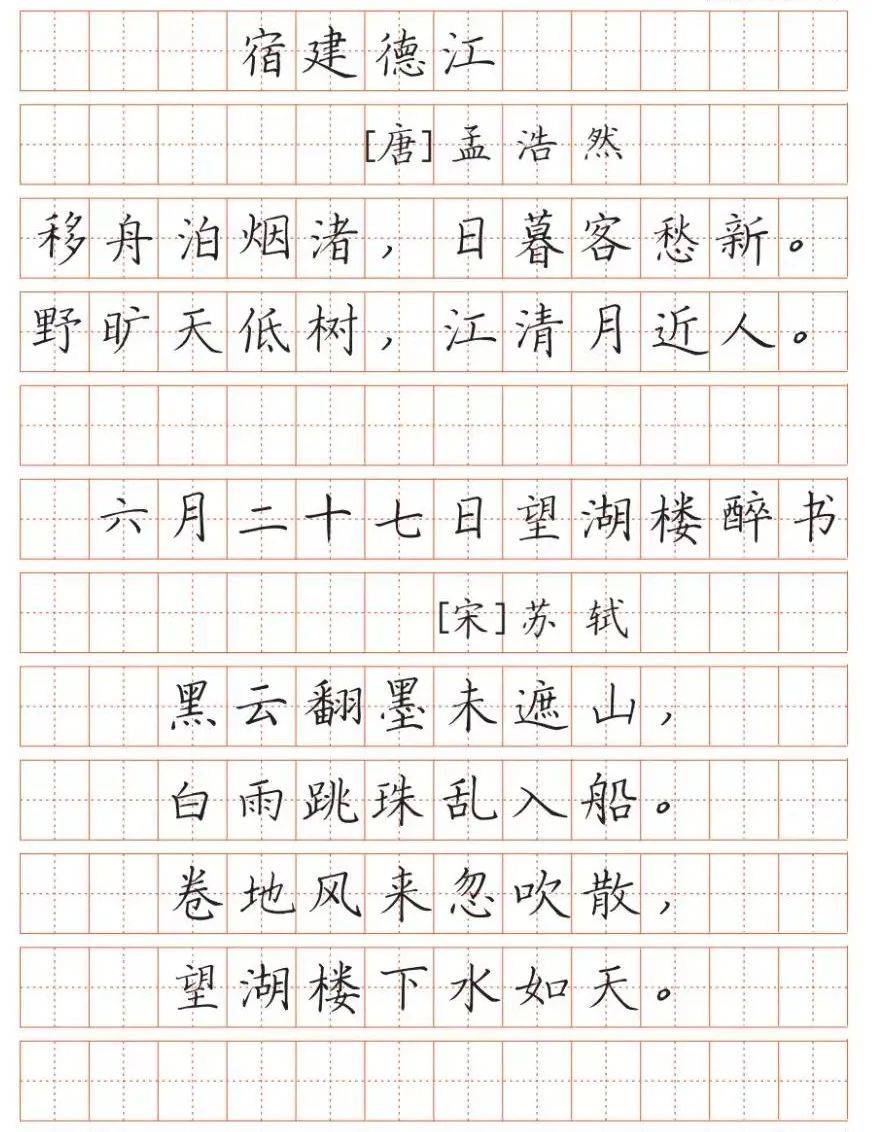 宿建德江
[唐]孟浩然
移舟泊烟渚，日暮客愁新。
野旷天低树，江清月近人。
六月二十七日望湖楼醉书
[宋]苏轼
黑云翻墨未遮山，
白雨跳珠乱入船。
卷地风来忽吹散，
望湖楼下水如天。